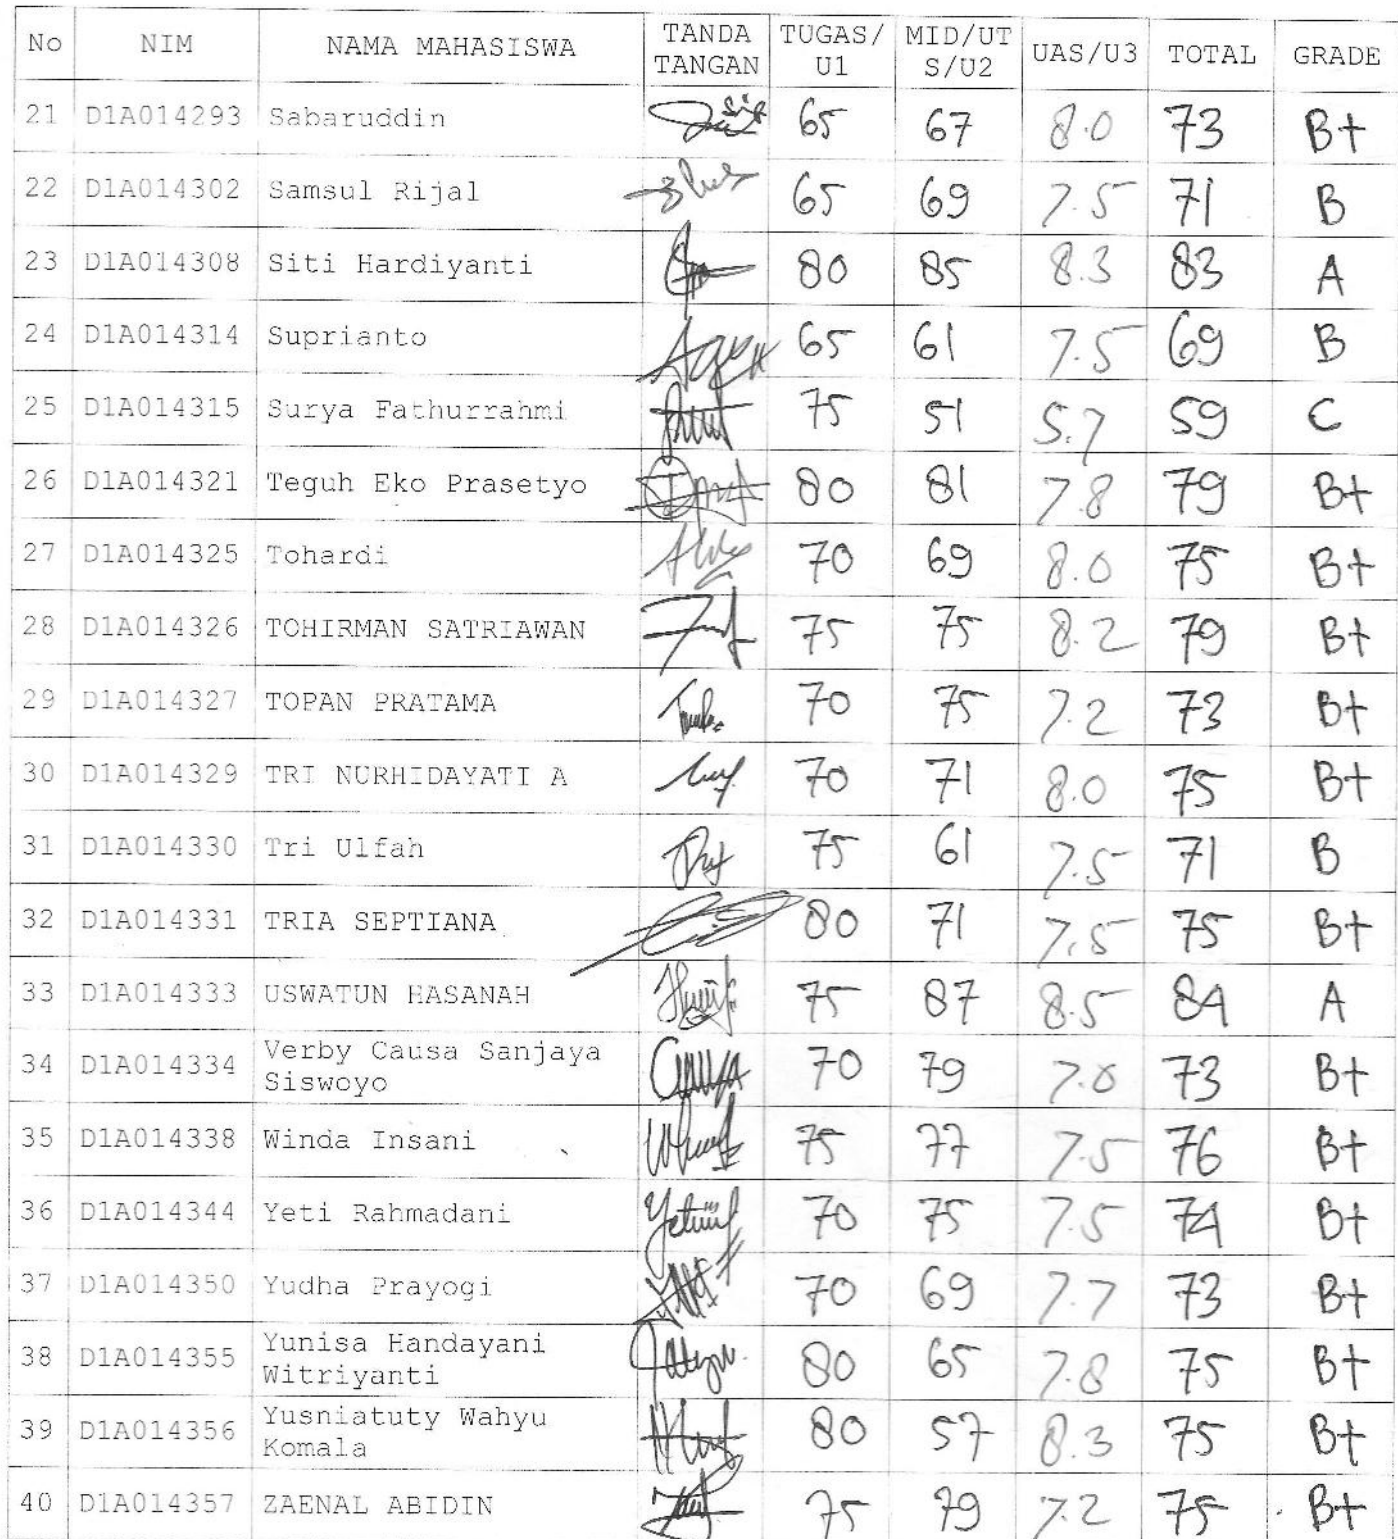 No NIM NAMA MAHASISWA TANDA TANGAN TUGAS/U1 MID/UTS/U2 UAS/U3 TOTAL GRADE
21 D1A014293 Sabaruddin 65 67 8.0 73 B+
22 D1A014302 Samsul Rijal 65 69 7.5 71 B
23 D1A014308 Siti Hardiyanti 80 85 8.3 83 A
24 D1A014314 Suprianto 65 61 7.5 69 B
25 D1A014315 Surya Fathurrahmi 75 51 5.7 59 C
26 D1A014321 Teguh Eko Prasetyo 80 81 7.8 79 B+
27 D1A014325 Tohardi 70 69 8.0 75 B+
28 D1A014326 TOHIRMAN SATRIAWAN 75 75 8.2 79 B+
29 D1A014327 TOPAN PRATAMA 70 75 7.2 73 B+
30 D1A014329 TRI NURHIDAYATI A 70 71 8.0 75 B+
31 D1A014330 Tri Ulfah 75 61 7.5 71 B
32 D1A014331 TRIA SEPTIANA 80 71 7.5 75 B+
33 D1A014333 USWATUN HASANAH 75 87 8.5 84 A
34 D1A014334 Verby Causa Sanjaya Siswoyo 70 79 7.0 73 B+
35 D1A014338 Winda Insani 75 77 7.5 76 B+
36 D1A014344 Yeti Rahmadani 70 75 7.5 74 B+
37 D1A014350 Yudha Prayogi 70 69 7.7 73 B+
38 D1A014355 Yunisa Handayani Witriyanti 80 65 7.8 75 B+
39 D1A014356 Yusniatuty Wahyu Komala 80 57 8.3 75 B+
40 D1A014357 ZAENAL ABIDIN 75 79 7.2 75 B+